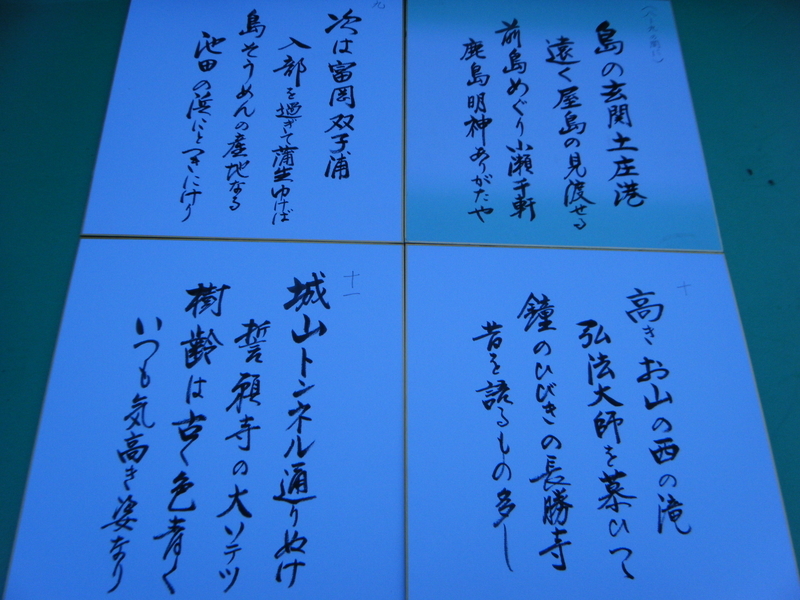 島の玄関土庄港
遠く屋島の見渡せる
前島めぐり小瀬千軒
鹿島明神ありがたや
九
次は富岡双子浦
入部を過ぎて蒲生ゆけば
島そうめんの産地なる
池田の浜につきにけり
十
高きお山の西の滝
弘法大師を慕ひつゝ
鐘のひびきの長勝寺
昔を語るもの多し
十一
城山トンネル通りぬけ
誓願寺の大ソテツ
樹齢は古く色青く
いつも気高き姿なり